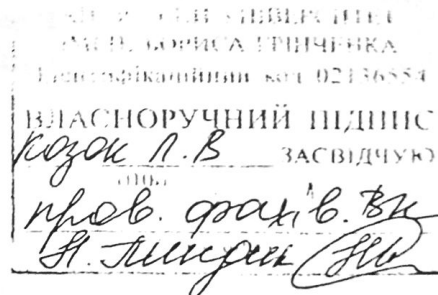 БОРИСА ГРІНЧЕНКА
Ідентифікаційний код 02136554
ВЛАСНОРУЧНИЙ ПІДПИС
Козак Л. В ЗАСВІДЧУЮ
пров. фахів. ВК
Н.